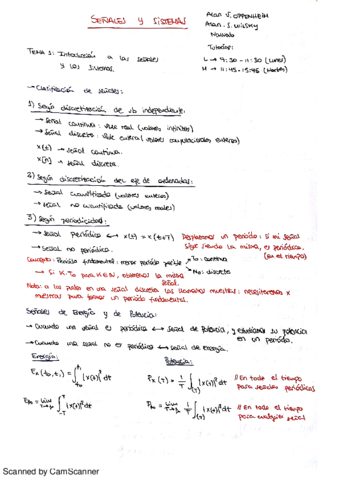 SEÑALES Y SISTEMAS
Alan V. OPPENHEIM
Alan S. Willsky
Nawab
Tutorías:
L → 9:30 - 11:30 (Lunes)
M → 11:45 - 13:45 (Martes)
TEMA 1: Introducción a las señales
y los sistemas.
→ Clasificación de señales:
1) Según discretización de vb independiente:
→ Señal continua: vble real (valores infinitos)
→ Señal discreta: vble entera (valores enteros)
x(t) → señal continua.
x[n] → señal discreta.
2) Según discretización del eje de ordenadas:
→ Señal cuantificada (valores enteros)
→ Señal no cuantificada (valores reales)
3) Según periodicidad:
→ Señal periódica ↔ x(t) = x(t+T)
→ Señal no periódica.
Desplazamos un periodo: si mi señal
sigue siendo la misma, es periódica.
(en el tiempo)
Concepto: Periodo fundamental: menor periodo posible
To: continua
No: discreta
→ Si K·To para K∈N, obtenemos la misma
señal.
Nota: a los pulsos en una señal discreta los llamamos muestras: necesitaremos x
muestras para tener un periodo fundamental.
Señales de Energía y de Potencia:
→ Cuando una señal es periódica ↔ señal de Potencia, y estudiamos su potencia
en un periodo.
→ Cuando una señal no es periódica ↔ señal de Energía.
Energía:
Potencia:
Ex (to, t1) = ∫ |x(t)|² dt
Px (T) = 1/T ∫(T) |x(t)|² dt
// En todo el tiempo
para señales periódicas
E∞ = lim T→∞ ∫ -T T |x(t)|² dt
P∞ = lim T→∞ 1/T ∫(T) |x(t)|² dt
// En todo el tiempo
para cualquier señal
Scanned by CamScanner